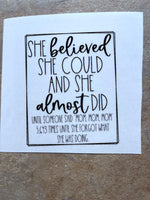 SHE believed
SHE COULD
AND SHE
almost DID
UNTIL SOMEONE SAID "MOM, MOM, MOM"
5,693 TIMES UNTIL SHE FORGOT WHAT
SHE WAS DOING.